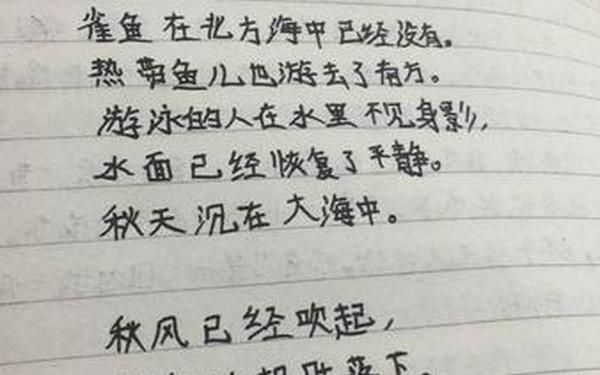 雀鱼在北方海中已经没有。
热带鱼儿也游去了有方。
游泳的人在水里不见身影,
水面已经恢复了平静。
秋天沉在大海中。
秋风已经吹起,
落下。